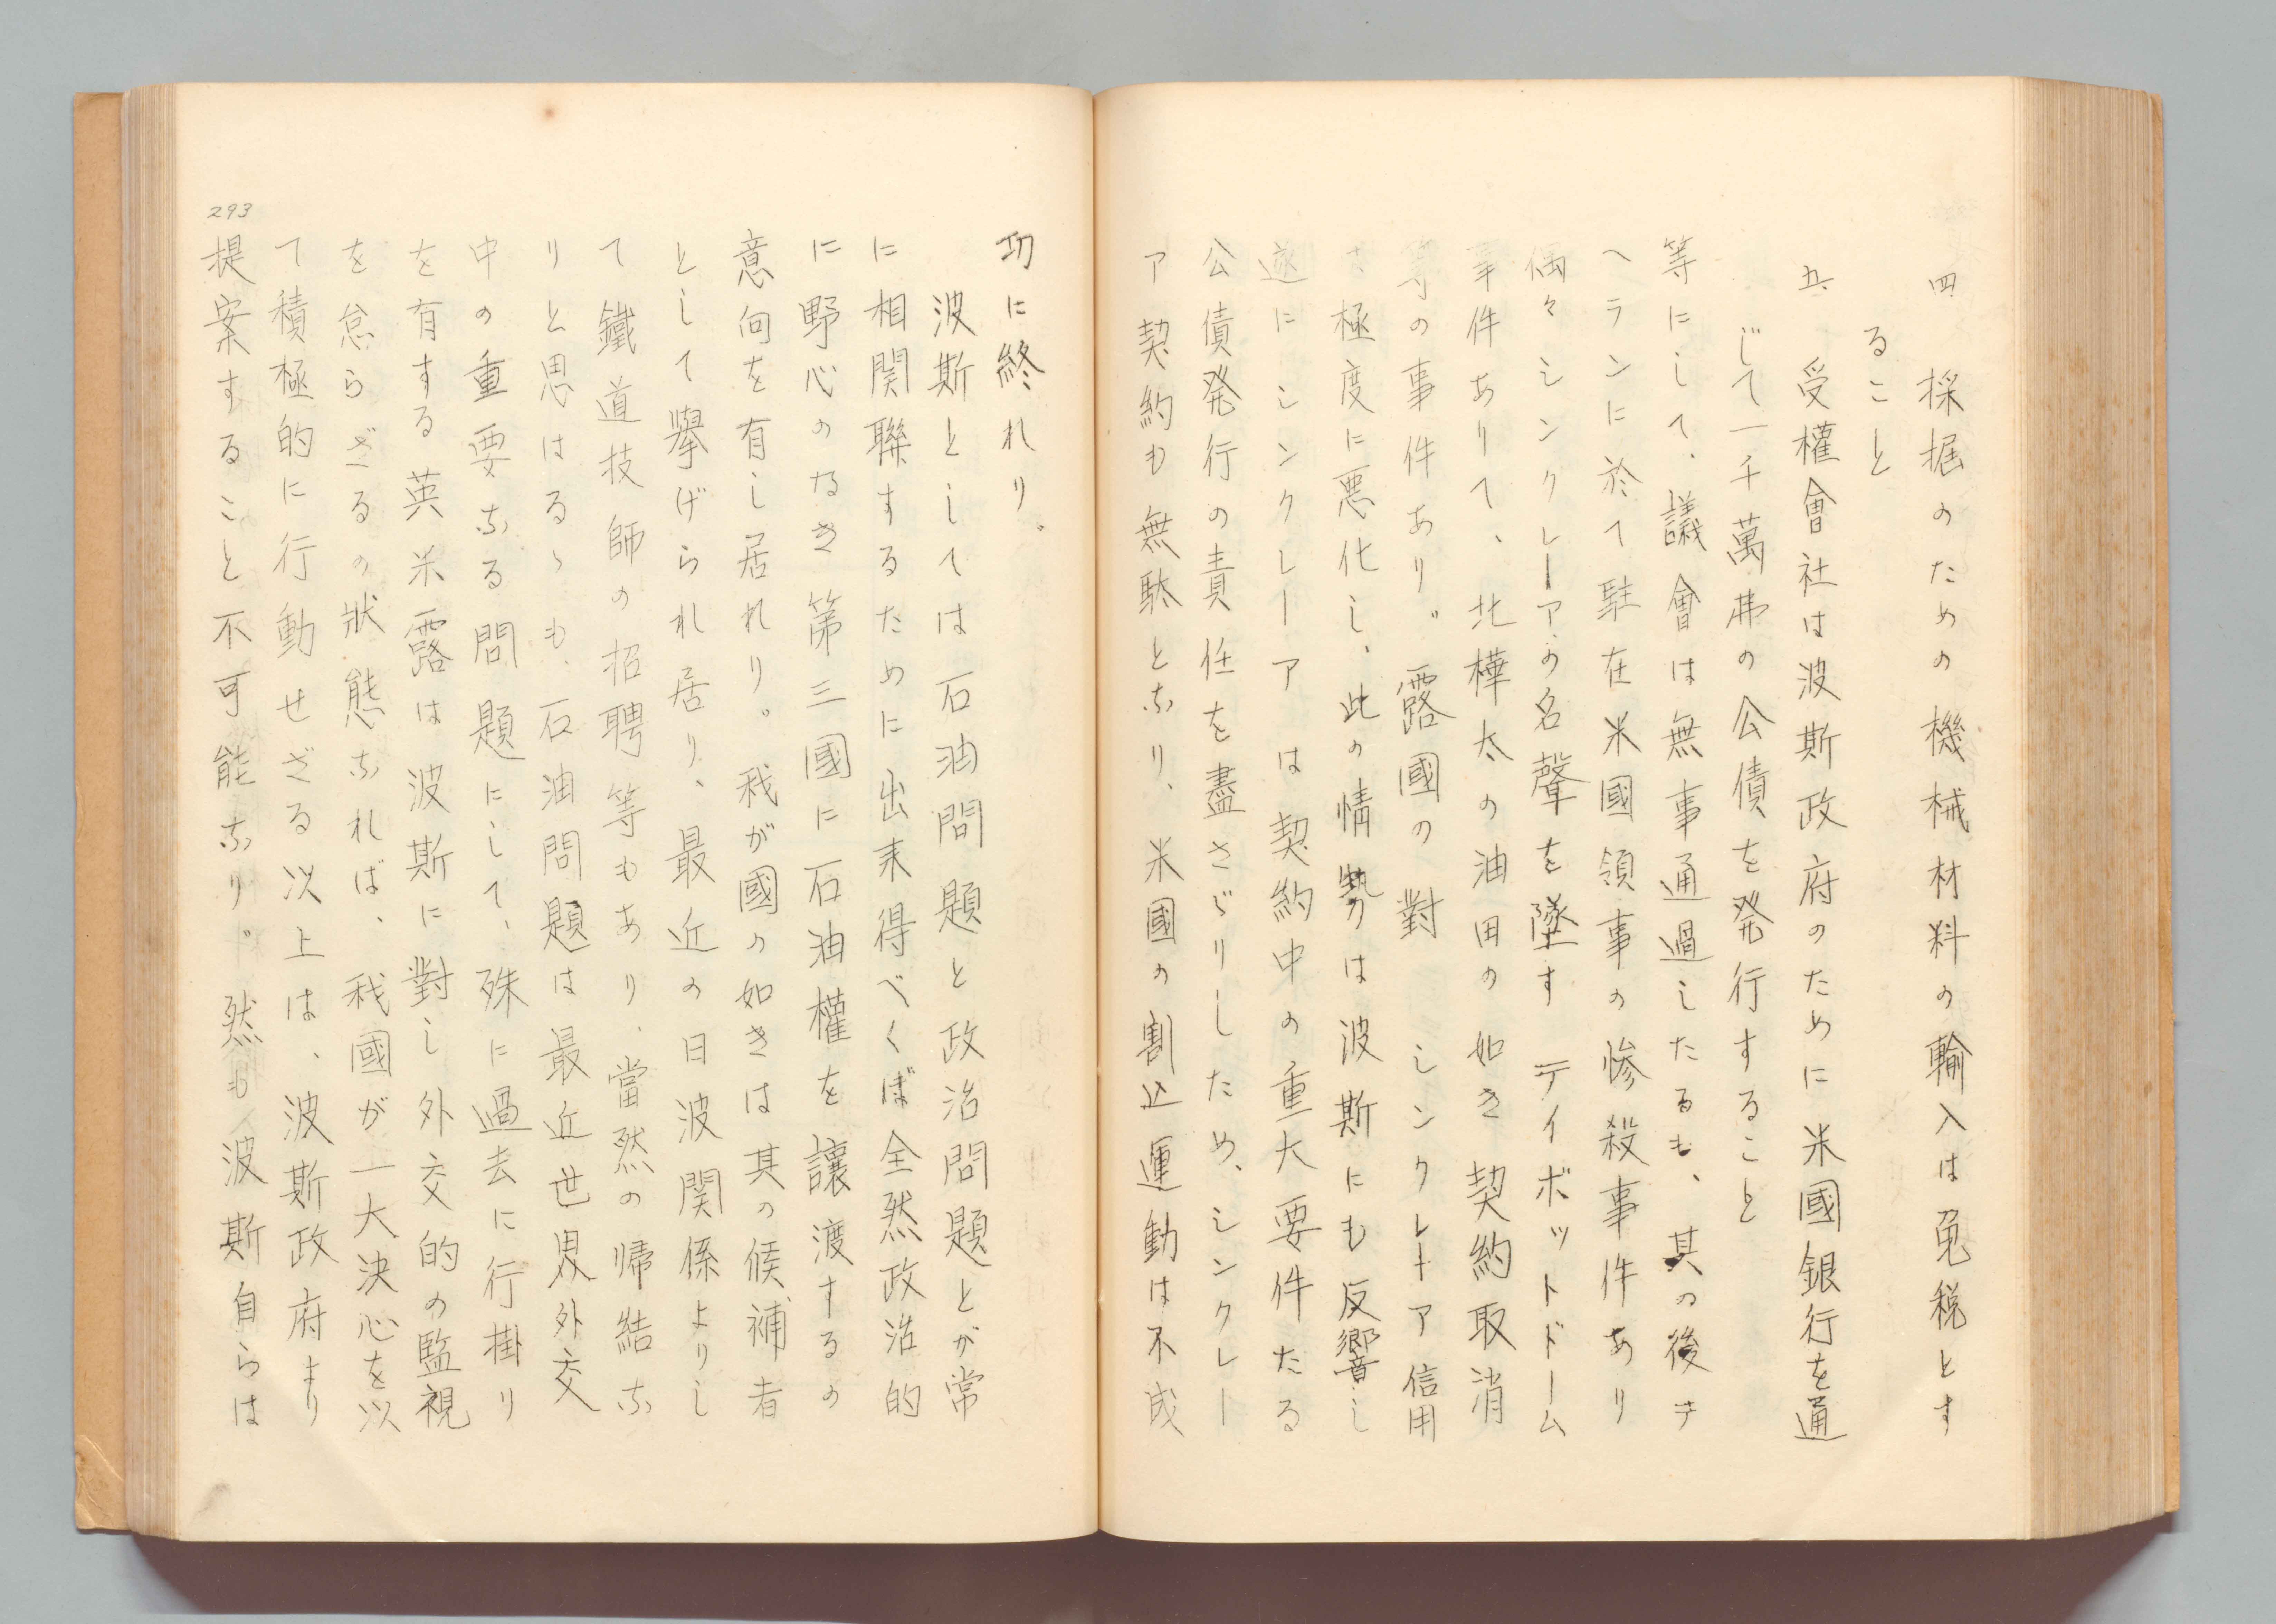 四、採掘のための機械材料の輸入は免税とす
ること
五、受權會社は波斯政府のために米國銀行を通
じて一千萬弗の公債を発行すること
等にして、議會は無事通過したるも、其の後テ
ヘランに於て駐在米國領事の惨殺事件あり
偶々シンクレーアの名聲を墜す テイボットドーム
事件ありて、北樺太の油田の如き契約取消
等の事件あり。露國の對 シンクレーア信用
は極度に悪化し、此の情勢は波斯にも反響し
遂にシンクレーアは契約中の重大要件たる
公債発行の責任を盡さゞりしため、シンクレー
ア契約も無駄となり、米國の割込運動は不成
功に終れり。
波斯としては石油問題と政治問題とが常
に相関聯するために出来得べくば全然政治的
に野心のなき第三國に石油權を讓渡するの
意向を有し居れり。我が國の如きは其の候補者
として擧げられ居り、最近の日波関係よりし
て鐵道技師の招聘等もあり、當然の帰結な
りと思はるゝも、石油問題は最近世界外交
中の重要なる問題にして、殊に過去に行掛り
を有する英米露は波斯に對し外交的の監視
を怠らざるの狀態なれば、我國が一大決心を以
て積極的に行動せざる以上は、波斯政府より
提案すること不可能なり。然も波斯自らは
293